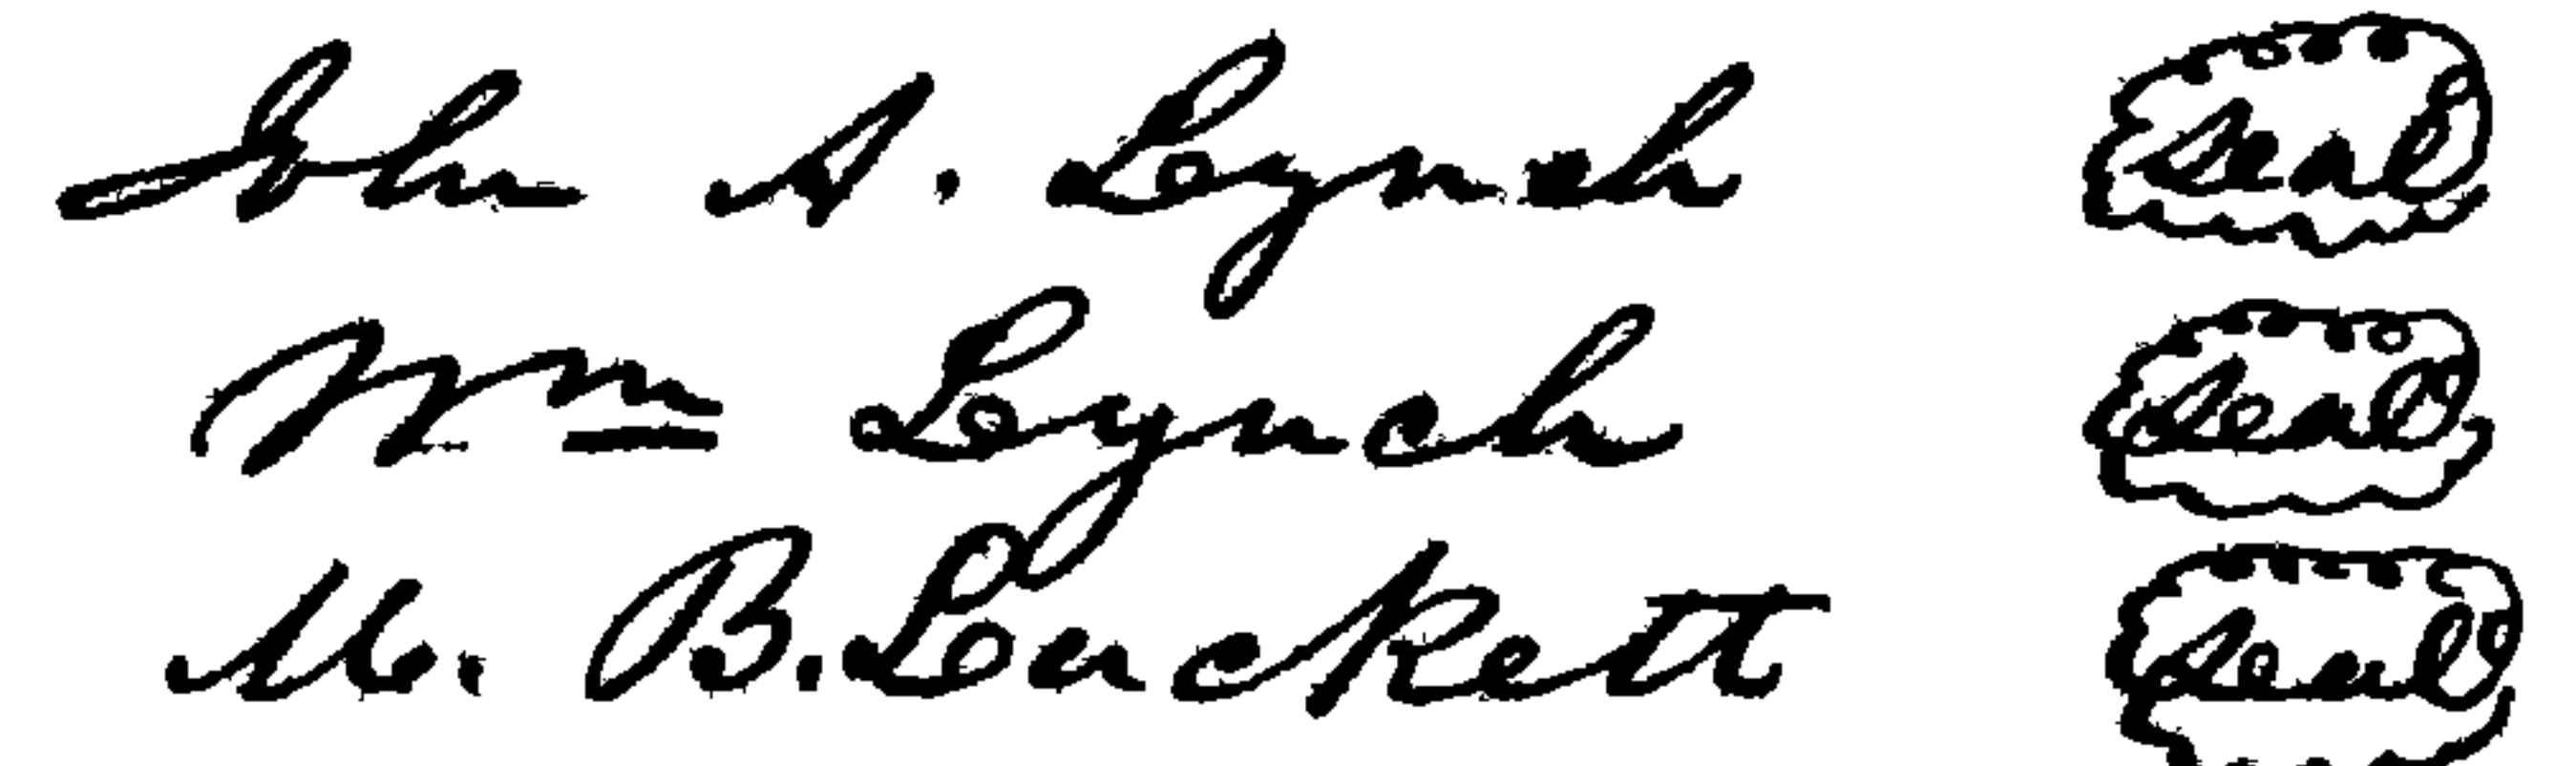 John A. Lynch Seal
Wm Lynch Seal
M. B. Luckett Seal